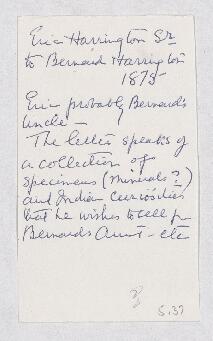 Eric Harrington Sr
to Bernard Harrington
1875
Eric probably Bernard's
Uncle —
The letter speaks of
a collection of
specimens (minerals?)
and Indian curiosities
that he wishes to sell for
Bernard's Aunt - etc
5.37